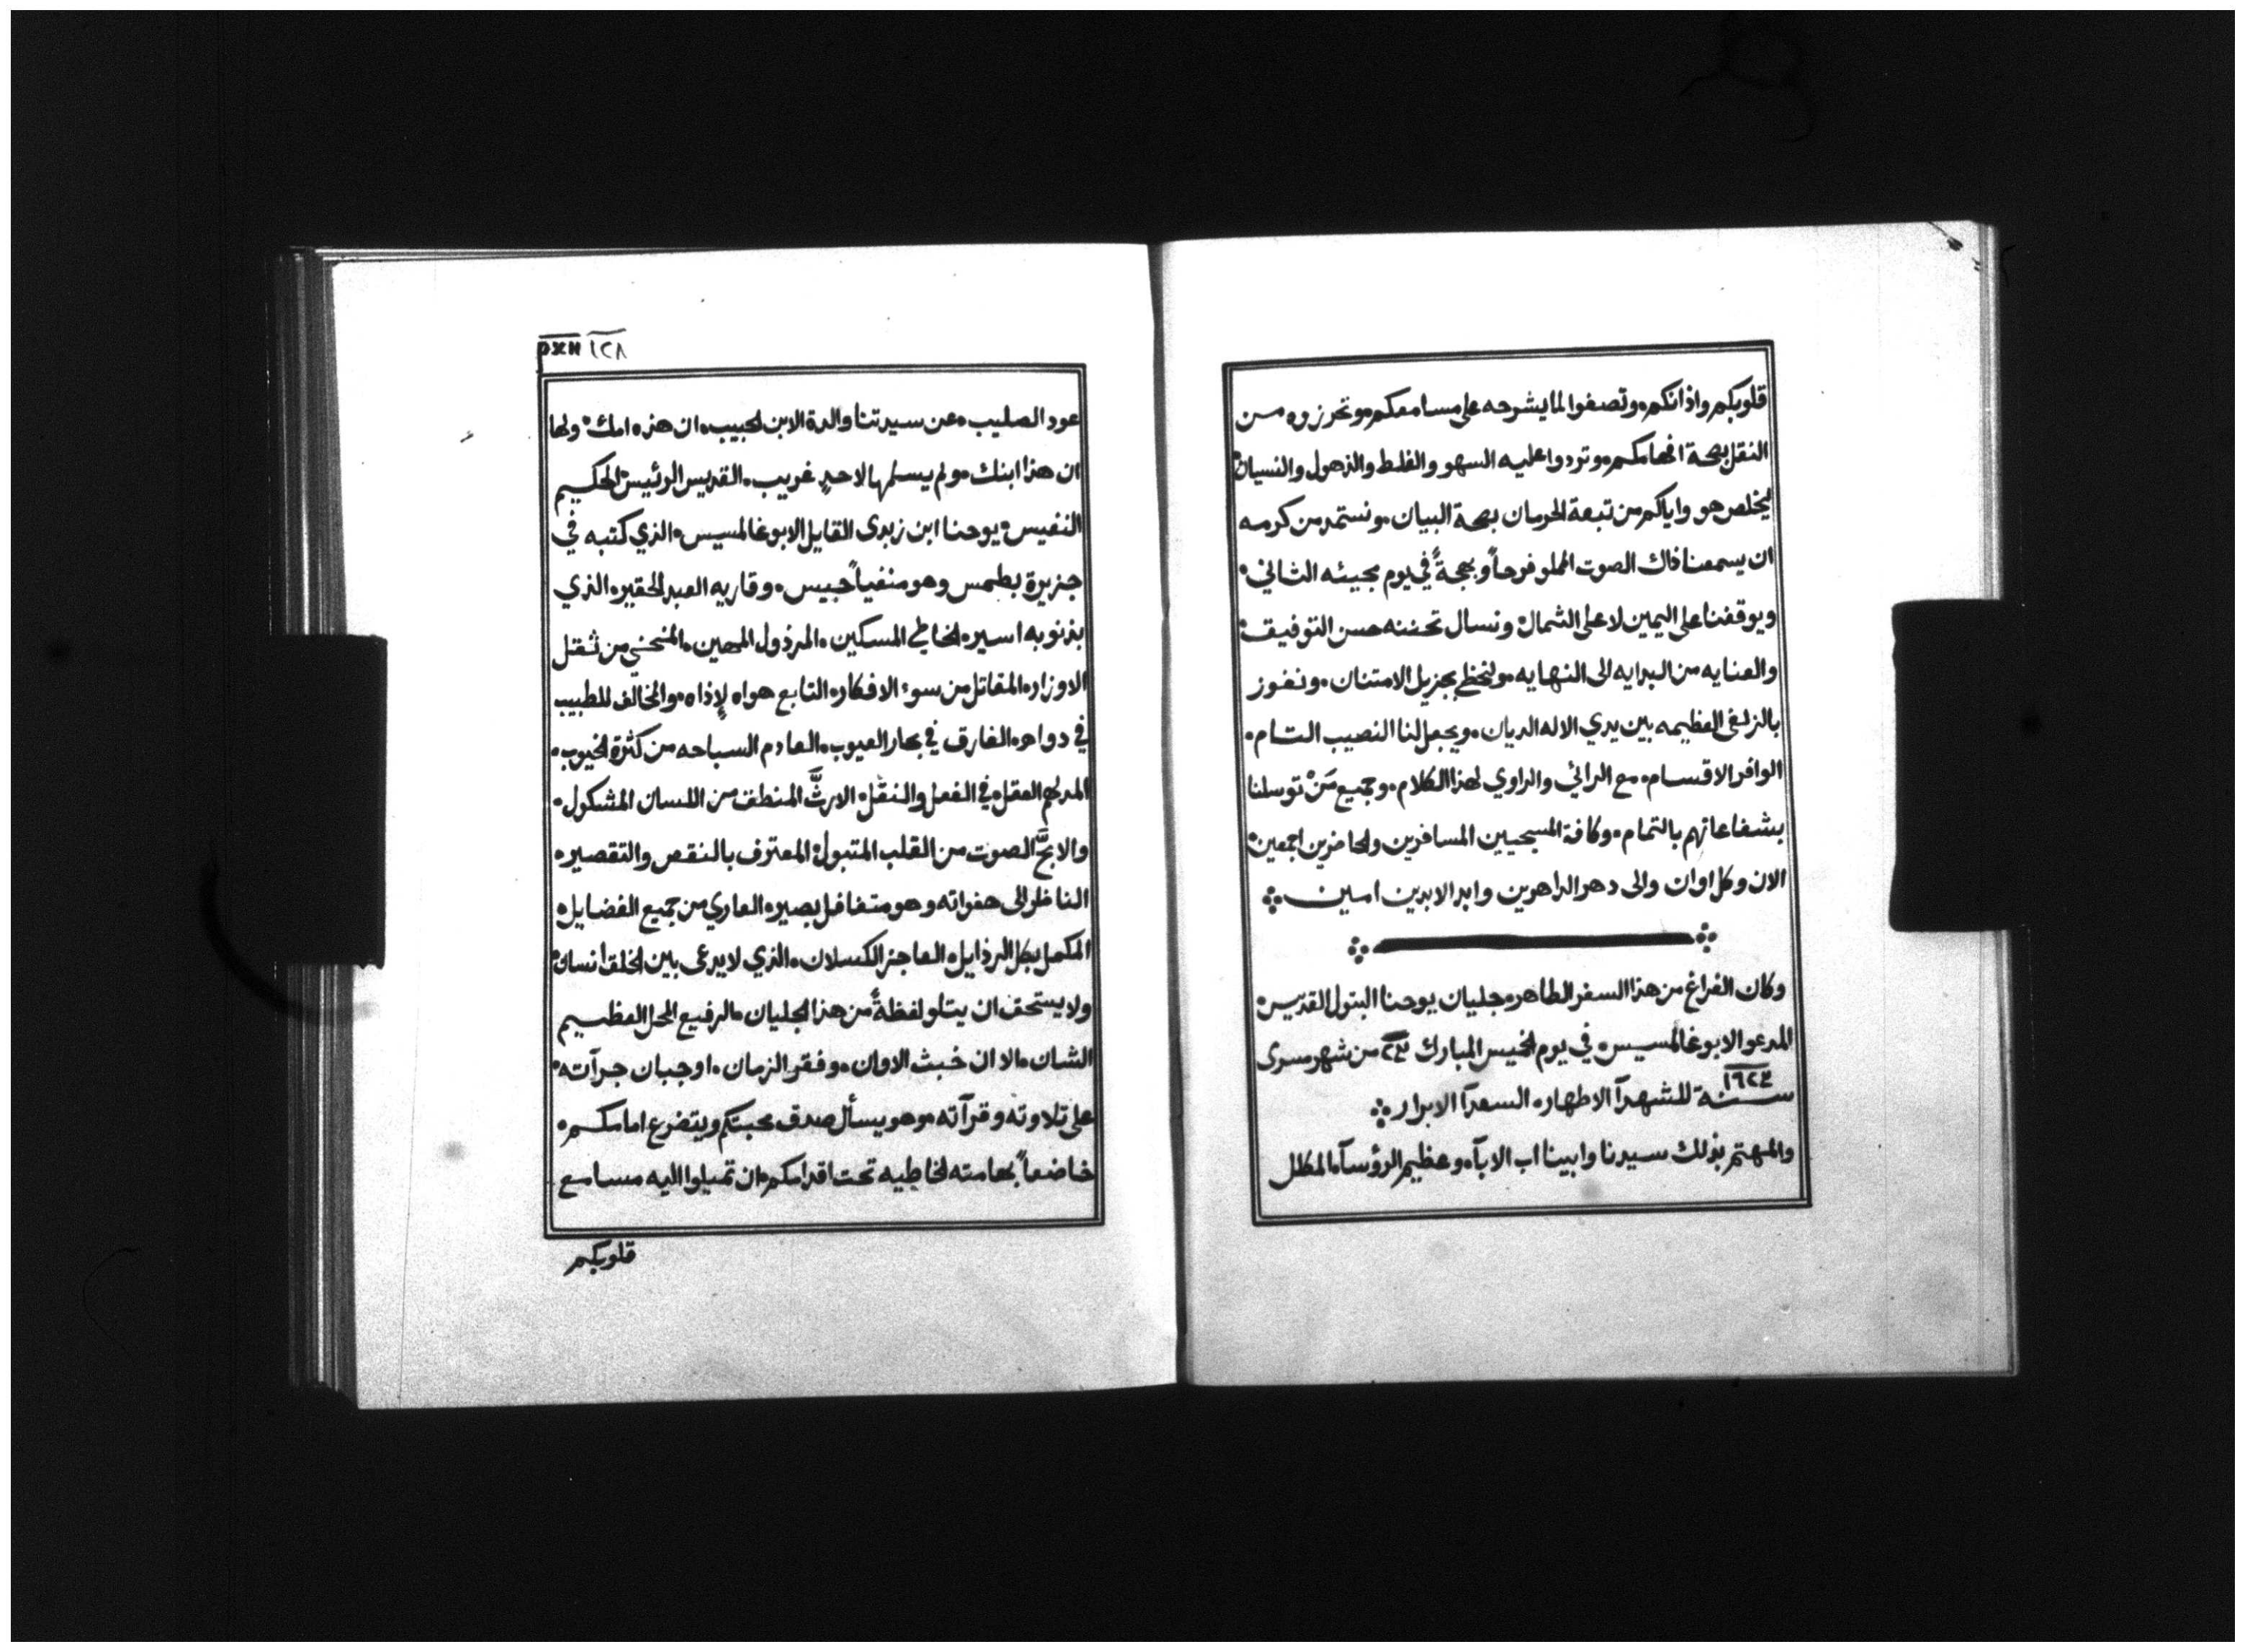 ⲣⲕⲏ ١٢٨
عود الصليب، عن سيدتنا والدة الابن الحبيب، ان هذه امك، ولها
ان هذا ابنك، ولم يسلمها لاحدٍ غريب، القديس الرئيس الحكيم
النفيس، يوحنا ابن زبدى القايل الابوغالمسيس، الذي كتبه في
جزيرة بطمس وهو منفياً حبيس، وقاريه العبد الحقير، الذي
بذنوبه اسير، الخاطي المسكين، المرذول المهين، المنحني من ثقل
الاوزار، المقاتل من سوء الافكار، التابع هواه لإذاه، والمخالف للطبيب
في دواه، الغارق في بحار العيوب، العادم السباحه من كثرة الخيوب،
المدلهم العقل، في الفعل والنقل، الارثَّ المنطق من اللسان المشكول،
والابحَّ الصوت من القلب المتبول، المعترف بالنقص والتقصير،
الناظر الى هفواته وهو متغافل بصير، العاري من جميع الفضايل،
المكمل بكل الرذايل، العاجز الكسلان، الذي لا يدعى بين الخلق انسان،
ولا يستحق ان يتلو لفظةً من هذا الجليان، الرفيع المحل العظيم
الشان، الا ان خبث الاوان، وفقر الزمان، اوجبان جرآته،
على تلاوته وقرآته، وهو يسأل صدق محبتكم ويتضرع امامكم،
خاضعاً بهامته الخاطيه تحت اقدامكم، ان تميلوا اليه مسامع
قلوبكم
قلوبكم واذانكم، وتصغوا لما يشرحه على مسامعكم، وتحرزوه من
النقل بصحة افهامكم، وتردوا عليه السهو والغلط والذهول والنسيان،
ليخلص هو واياكم من تبعة الحرمان بصحة البيان، ونستمد من كرمه
ان يسمعنا ذاك الصوت المملو فرحاً وبهجةً في يوم مجيئه الثاني،
ويوقفنا على اليمين لا على الشمال، ونسال تحننه حسن التوفيق،
والعنايه من البدايه الى النهايه، ولنحظى بجزيل الامتنان، ونفوز
بالزلفى العظيمه بين يدي الاله الديان، ويجعل لنا النصيب التام،
الوافر الاقسام، مع الرائي والراوي لهذا الكلام، وجميع مَنْ توسلنا
بشفاعاتهم بالتمام، وكافة المسيحيين المسافرين والحاضرين اجمعين،
الان وكل اوان والى دهر الداهرين وابد الابدين امين
وكان الفراغ من هذا السفر الطاهر، جليان يوحنا البتول القديس،
المدعو الابوغالمسيس، في يوم الخيس المبارك ٢٣ من شهر مسرى
١٦٢٣
سنة للشهدآ الاطهار، السعدآ الابرار
والمهتم بذلك سيدنا وابينا اب الابآء، وعظيم الرؤسآء، المظلل